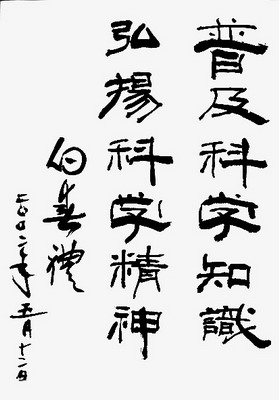 普及科学知識
弘揚科学精神
白春禮
二〇〇二年五月十二日